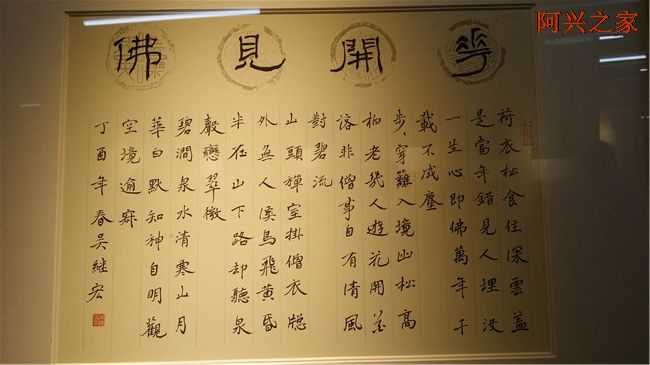 阿兴之家
華開見佛
荷衣松食住深雲蓋
是當年錯見人埋没
一生心即佛萬年千
載不成塵
步々穿籬入境幽松高
柏老幾人遊花開花
落非僧事自有清風
對碧流
山頭禪室掛僧衣牕
外無人溪鳥飛黄昏
半在山下路却聽泉
聲戀翠微
碧澗泉水清寒山月
華白默知神自明觀
空境逾寂
丁酉年春吴継宏